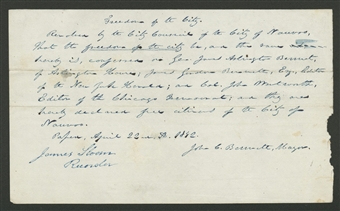 Freedom of the City.
Resolved by the City Council of the City of Nauvoo,
That the freedom of the city be, and the same
hereby is, conferred on Gen. James Arlington Bennet,
of Arlington House; James Gordon Bennett, Esq., Editor
of the New York Herald; and Col. John Wentworth,
Editor of the Chicago Democrat; and they are
hereby declared free citizens of the City of
Nauvoo.
Passed, April 22nd, 1842.
James Sloan
Recorder
John C. Bennett, Mayor.